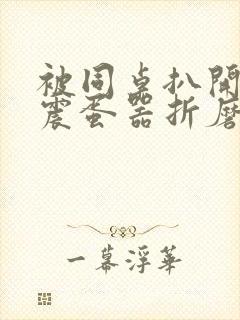 被同桌扒開
震蛋器折磨
一幕浮華